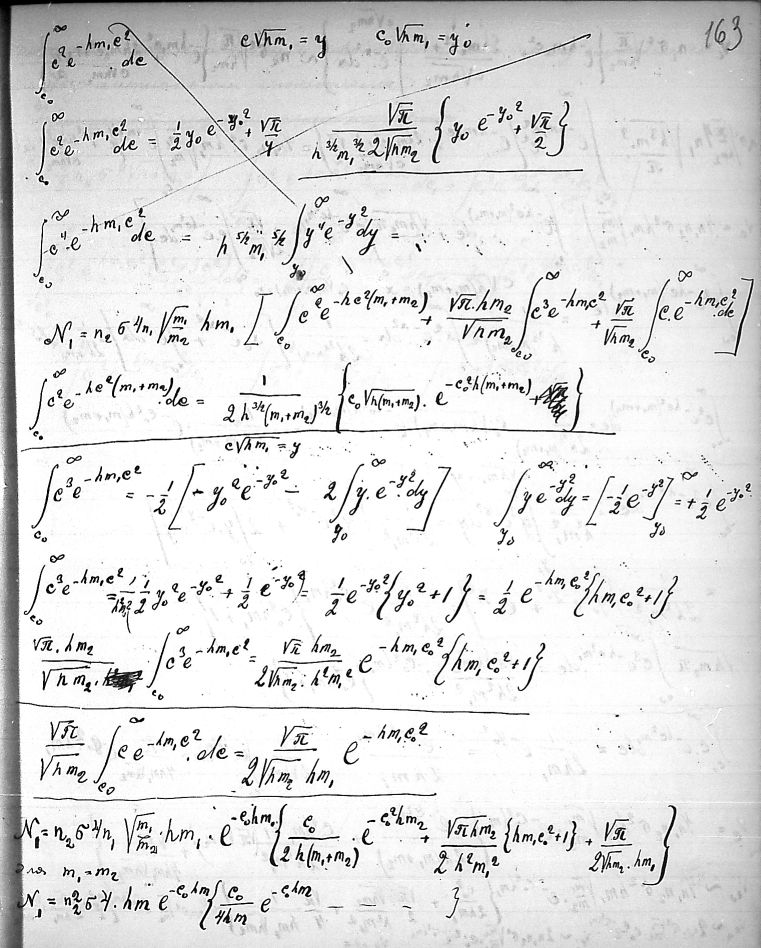 163
∫_{c₀}^{∞} c² e^{-hm₁c²} dc    c√hm₁ = y    c₀√hm₁ = y₀
∫_{c₀}^{∞} c² e^{-hm₁c²} dc = ½ y₀ e^{-y₀²} + √π/4    √π/(h^{3/2} m₁^{3/2} 2√hm₂) { y₀ e^{-y₀²} + √π/2 }
∫_{c₀}^{∞} c⁴ e^{-hm₁c²} dc = h^{5/2} m₁^{5/2} ∫_{y₀}^{∞} y⁴ e^{-y²} dy =
N₁ = n₂ σ⁴ n₁ √(m₁/m₂) · hm₁ [ ∫_{c₀}^{∞} c² e^{-hc²(m₁+m₂)} + (√π · hm₂)/√hm₂ ∫_{c₀}^{∞} c³ e^{-hm₁c²} + √π/√hm₂ ∫_{c₀}^{∞} c · e^{-hm₁c²} dc ]
∫_{c₀}^{∞} c² e^{-hc²(m₁+m₂)} · dc = 1/(2h^{3/2}(m₁+m₂)^{3/2}) { c₀ √h(m₁+m₂) · e^{-c₀²h(m₁+m₂)} + }
c√hm₁ = y
∫_{c₀}^{∞} c³ e^{-hm₁c²} = -½ [ -y₀² e^{-y₀²} - 2 ∫_{y₀}^{∞} y · e^{-y²} · dy ]    ∫_{y₀}^{∞} y e^{-y²} dy = [ -½ e^{-y²} ]_{y₀}^{∞} = +½ e^{-y₀²}
∫_{c₀}^{∞} c³ e^{-hm₁c²} = 1/(h²m₁²) { ½ y₀² e^{-y₀²} + ½ e^{-y₀²} } = ½ e^{-y₀²} { y₀² + 1 } = ½ e^{-hm₁c₀²} { hm₁c₀² + 1 }
(√π · hm₂)/√hm₂ · ∫_{c₀}^{∞} c³ e^{-hm₁c²} = (√π hm₂)/(2√hm₂ · h²m₁²) e^{-hm₁c₀²} { hm₁c₀² + 1 }
√π/√hm₂ ∫_{c₀}^{∞} c e^{-hm₁c²} · dc = √π/(2√hm₂ hm₁) e^{-hm₁c₀²}
N₁ = n₂ σ⁴ n₁ √(m₁/m₂) · hm₁ · e^{-c₀²hm₁} { c₀/(2h(m₁+m₂)) · e^{-c₀²hm₂} + √πhm₂/(2h²m₁²) { hm₁c₀² + 1 } + √π/(2√hm₂ · hm₁) }
m₁ = m₂
N₁ = n₂² σ⁴ · hm e^{-c₀hm} { c₀/4hm e^{-c₀hm} — — — }